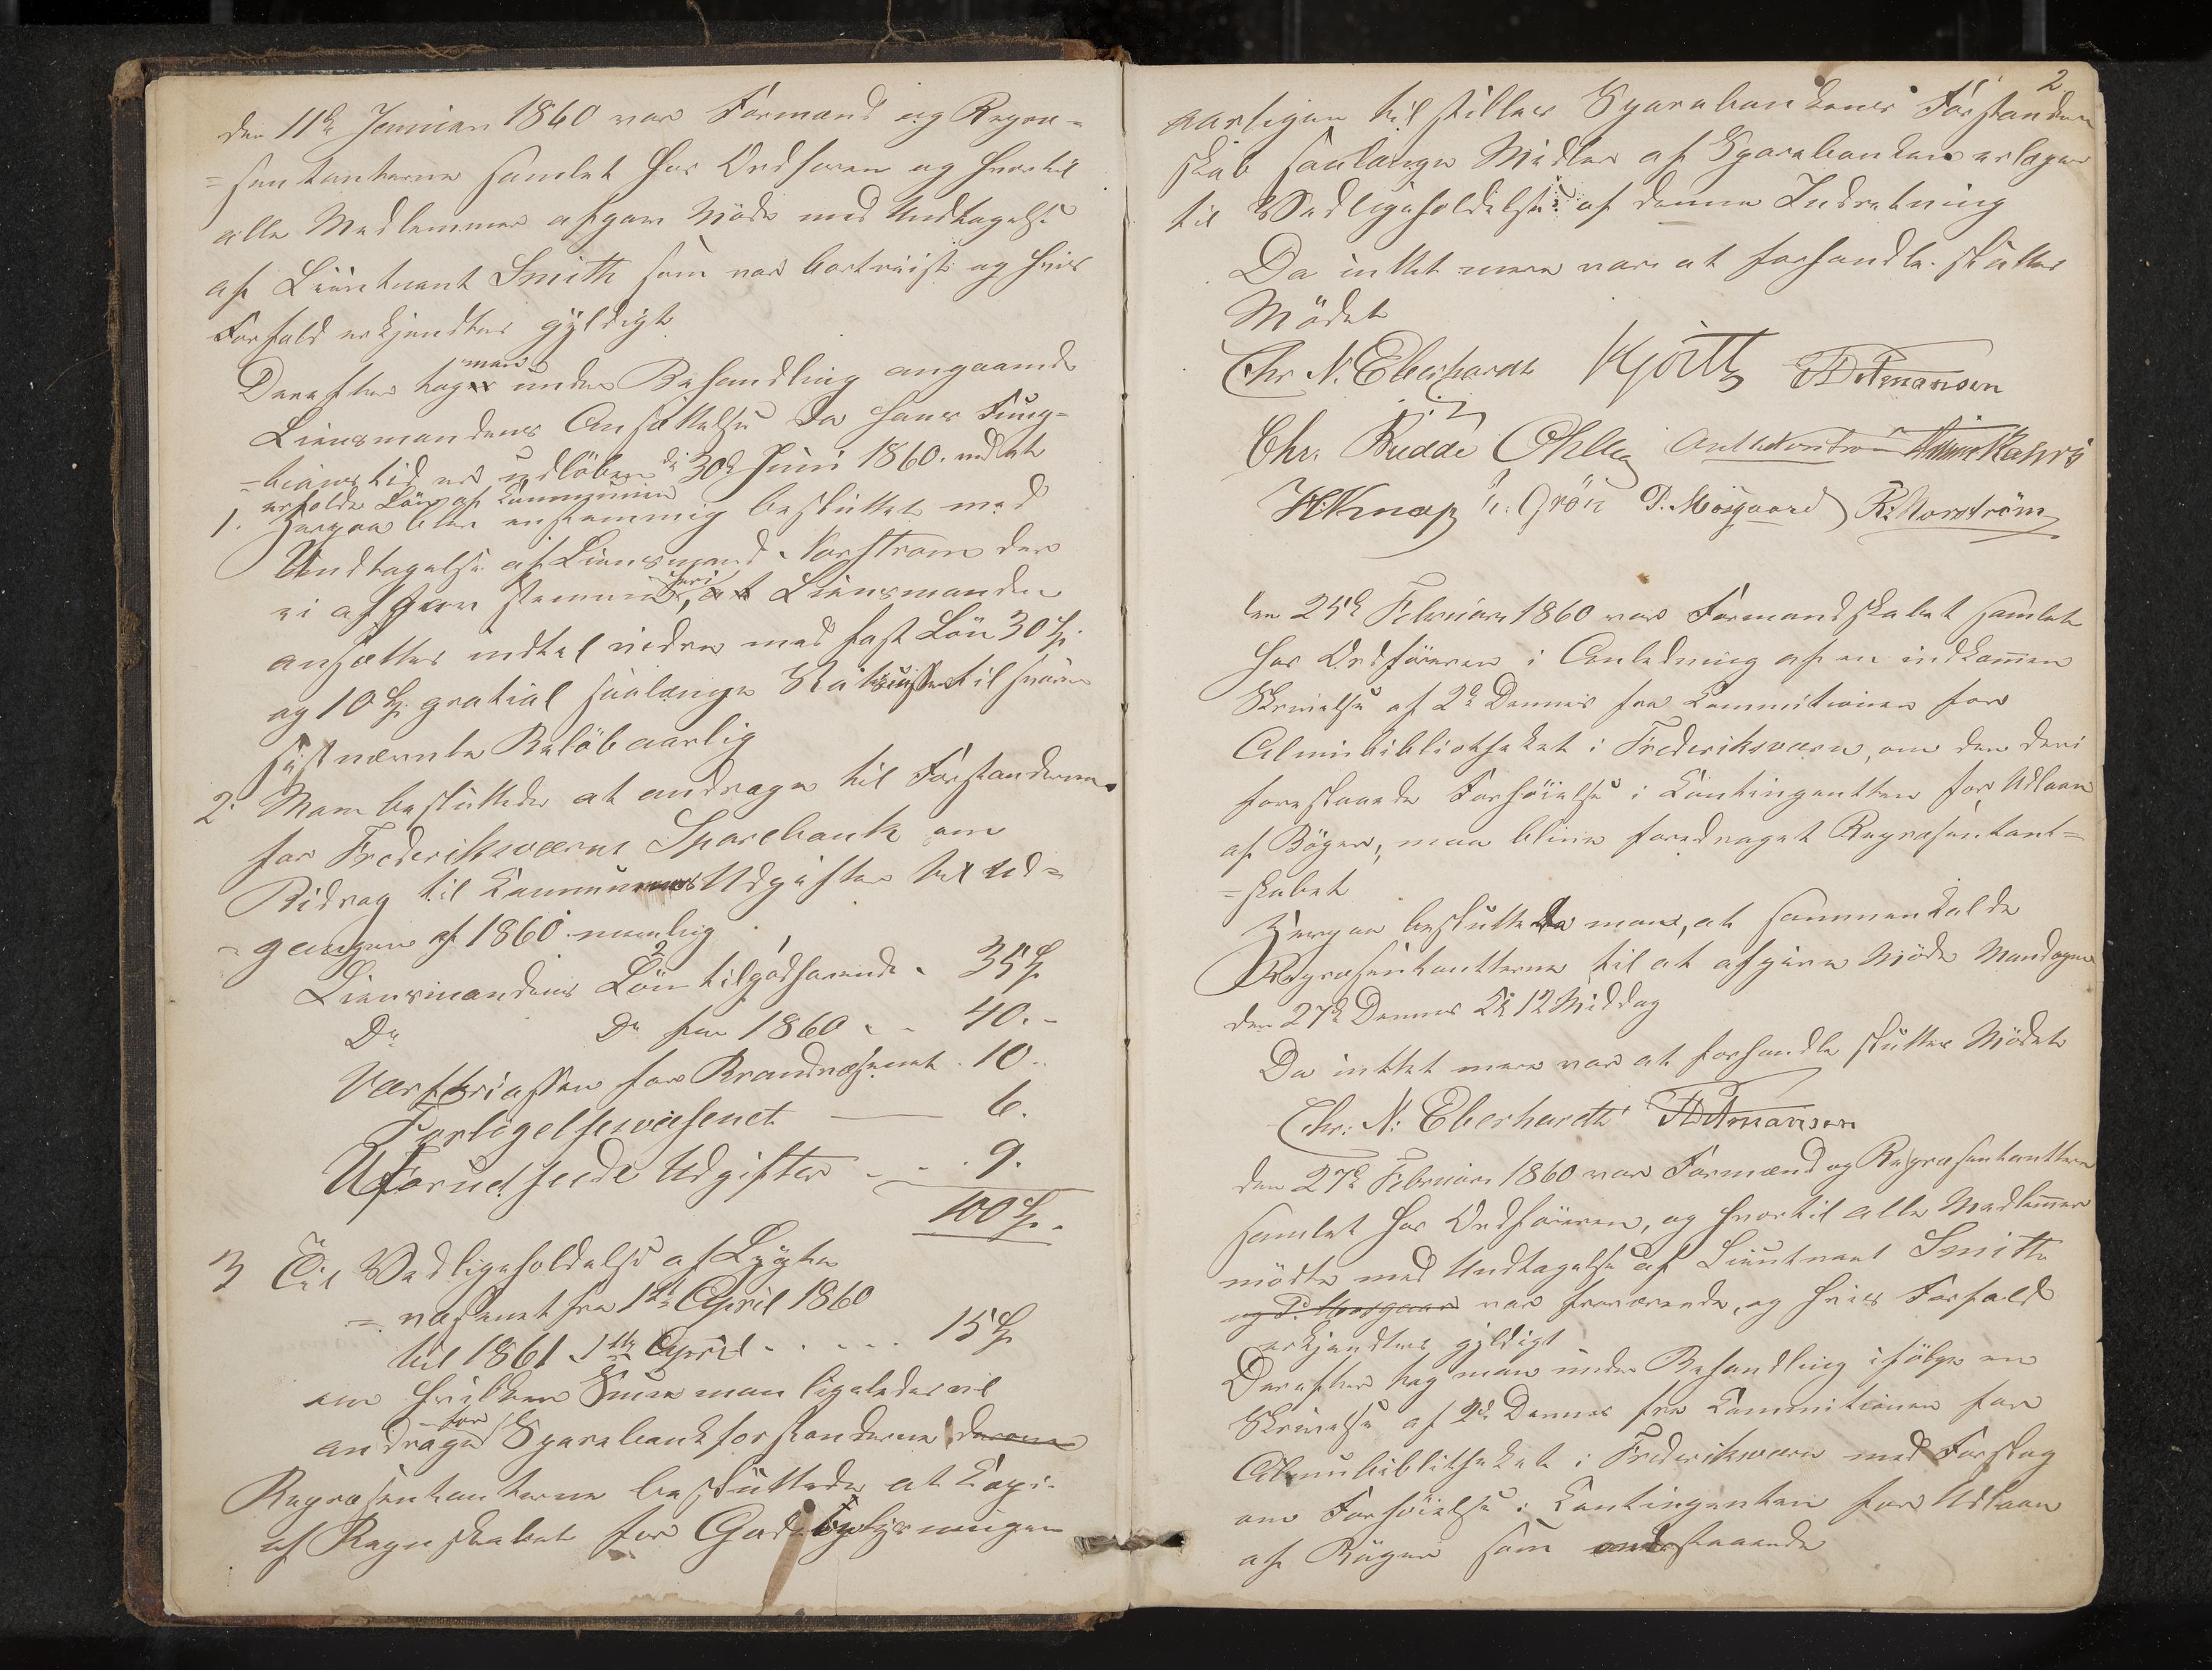 den 11te Januar 1860 var Formænd og Repræ=
=sentanterne samlet hos Ordføren og hvortil
alle Medlemmer afgave Møde med Undtagelse
af Lieutnant Smith som var bortreist og hvis
Forfald erkjendtes gyldigt
Derefter tog man under Behandling angaaende
Liensmandens Ansættelse da hans Fung=
=tionstid er udløben de 30te Juni 1860. ved at
erholde Løn af Communen
1. Herpaa blev enstemmig besluttet med
Undtagelse af Liensmand Norstrøm der
ei afgav Stemme, at Liensmanden
ansættes indtil videre med fast Løn 30 Sp
og 10 Sp. gratial saalænge til svare
sistnævnte Beløb aarlig
2. Man besluttede at andrage til Forstanderne
for Frederiksværns Sparebank om
Bidrag til Communens Udgifter til Ud=
=gangen af 1860 nemlig
Liensmandens Løn tilgodehavende . 35 Sp
Do Do for 1860 . . 40. -
for Brandvæsenet . 10 ..
Forligelsesvæsenet — 6.
Uforudseede Udgifter - - . 9.
100 Sp. -
3 Til Vedligeholdelse af Lygte
=væsenet fra 1ste April 1860
til 1861 1ste April . . . . . 15 Sp
om hvilken Sum man ligeledes vil
andrage for Sparebankforstanderne derom
Repræsentanterne besluttede at Kopi
af Regnskabet for Gadebelysningen
2
aarligen tilstilles Sparebankens Forstander
skab saalænge Midler af Sparebanken erlægges
til Vedligeholdelse af denne Indretning
Da intet mere var at forhandle sluttes
Mødet
Chr N. Eberhardt Hjorth TDitmansen
Chr. Budde
H. Knap N. Grøn P. Mosgaard R. Norstrøm
den 25de Februar 1860 var Formandskabet samlet
hos Ordføreren i Anledning af en indkommen
Skrivelse af 2de Dennes fra Commitionen for
Almuebibliotheket i Frederiksværn, om den deri
foreslaaede Forhøielse i Kontingentten for Udlaan
af Bøger, maa blive foredraget Repræsentant=
=skabet
Herpaa besluttede man, at sammenkalde
Repræsentantterne til at afgive Møde Mandagen
den 27de Dennes Kl 12 Middag
Da inttet mere var at forhandle sluttes Mødet
Chr: N: Eberhardt TDitmansen
den 27de Februar 1860 var Formænd og Repræsentantterne
samlet hos Ordføreren, og hvortil alle Medlemmer
mødte med Undtagelse af Lieutnant Smith
og P. Mosgaard var fraværende, og hvis Forfald
erkjendtes gyldigt
Derefter tog man under Behandling ifølge en
Skrivelse af 2de Dennes fra Commitionen for
Almuebibliotheket i Frederiksværn med Forslag
om Forhøielse i Contingenten for Udlaan
af Bøger som